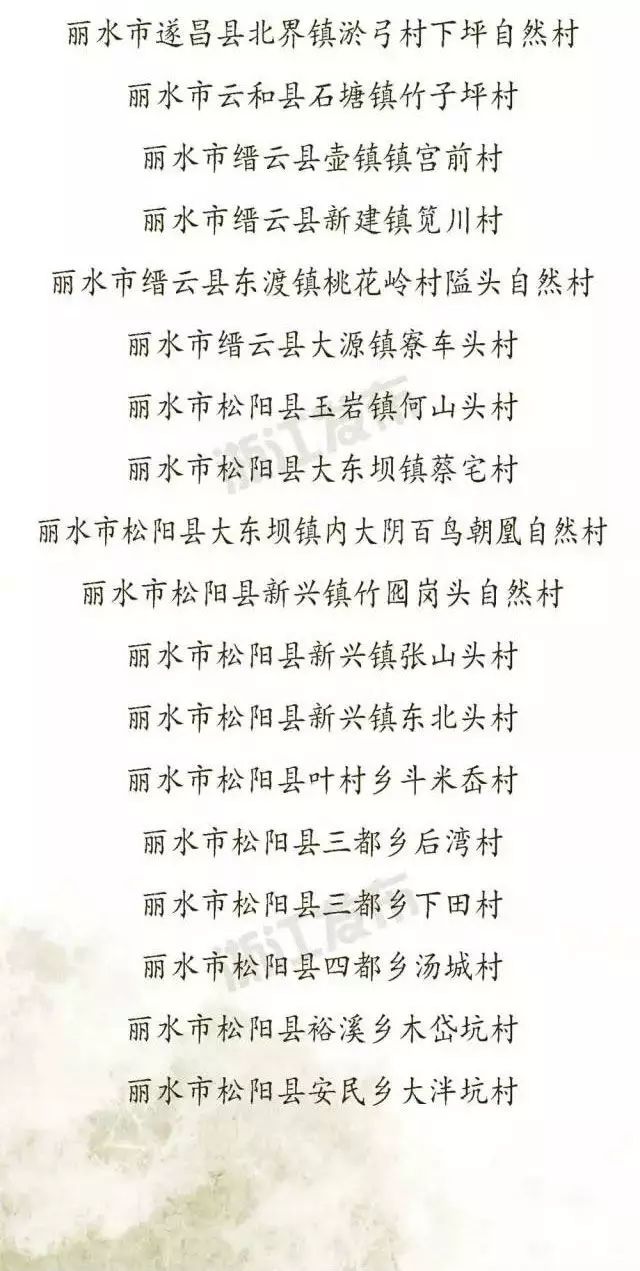 丽水市遂昌县北界镇淤弓村下坪自然村
丽水市云和县石塘镇竹子坪村
丽水市缙云县壶镇镇宫前村
丽水市缙云县新建镇笕川村
丽水市缙云县东渡镇桃花岭村隘头自然村
丽水市缙云县大源镇寮车头村
丽水市松阳县玉岩镇何山头村
浙江发布
丽水市松阳县大东坝镇蔡宅村
丽水市松阳县大东坝镇内大阴百鸟朝凰自然村
丽水市松阳县新兴镇竹囮岗头自然村
丽水市松阳县新兴镇张山头村
丽水市松阳县新兴镇东北头村
丽水市松阳县叶村乡斗米岙村
丽水市松阳县三都乡后湾村
丽水市松阳县三都乡下田村
浙江发布
丽水市松阳县四都乡汤城村
丽水市松阳县裕溪乡木岱坑村
丽水市松阳县安民乡大泮坑村